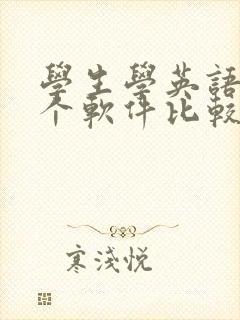 學生學英語
个軟件比較
寒淺悦